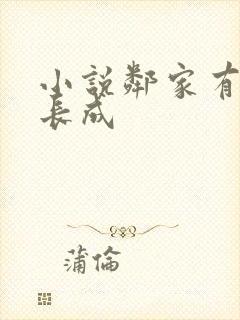 小說鄰家有
長成
蒲倫